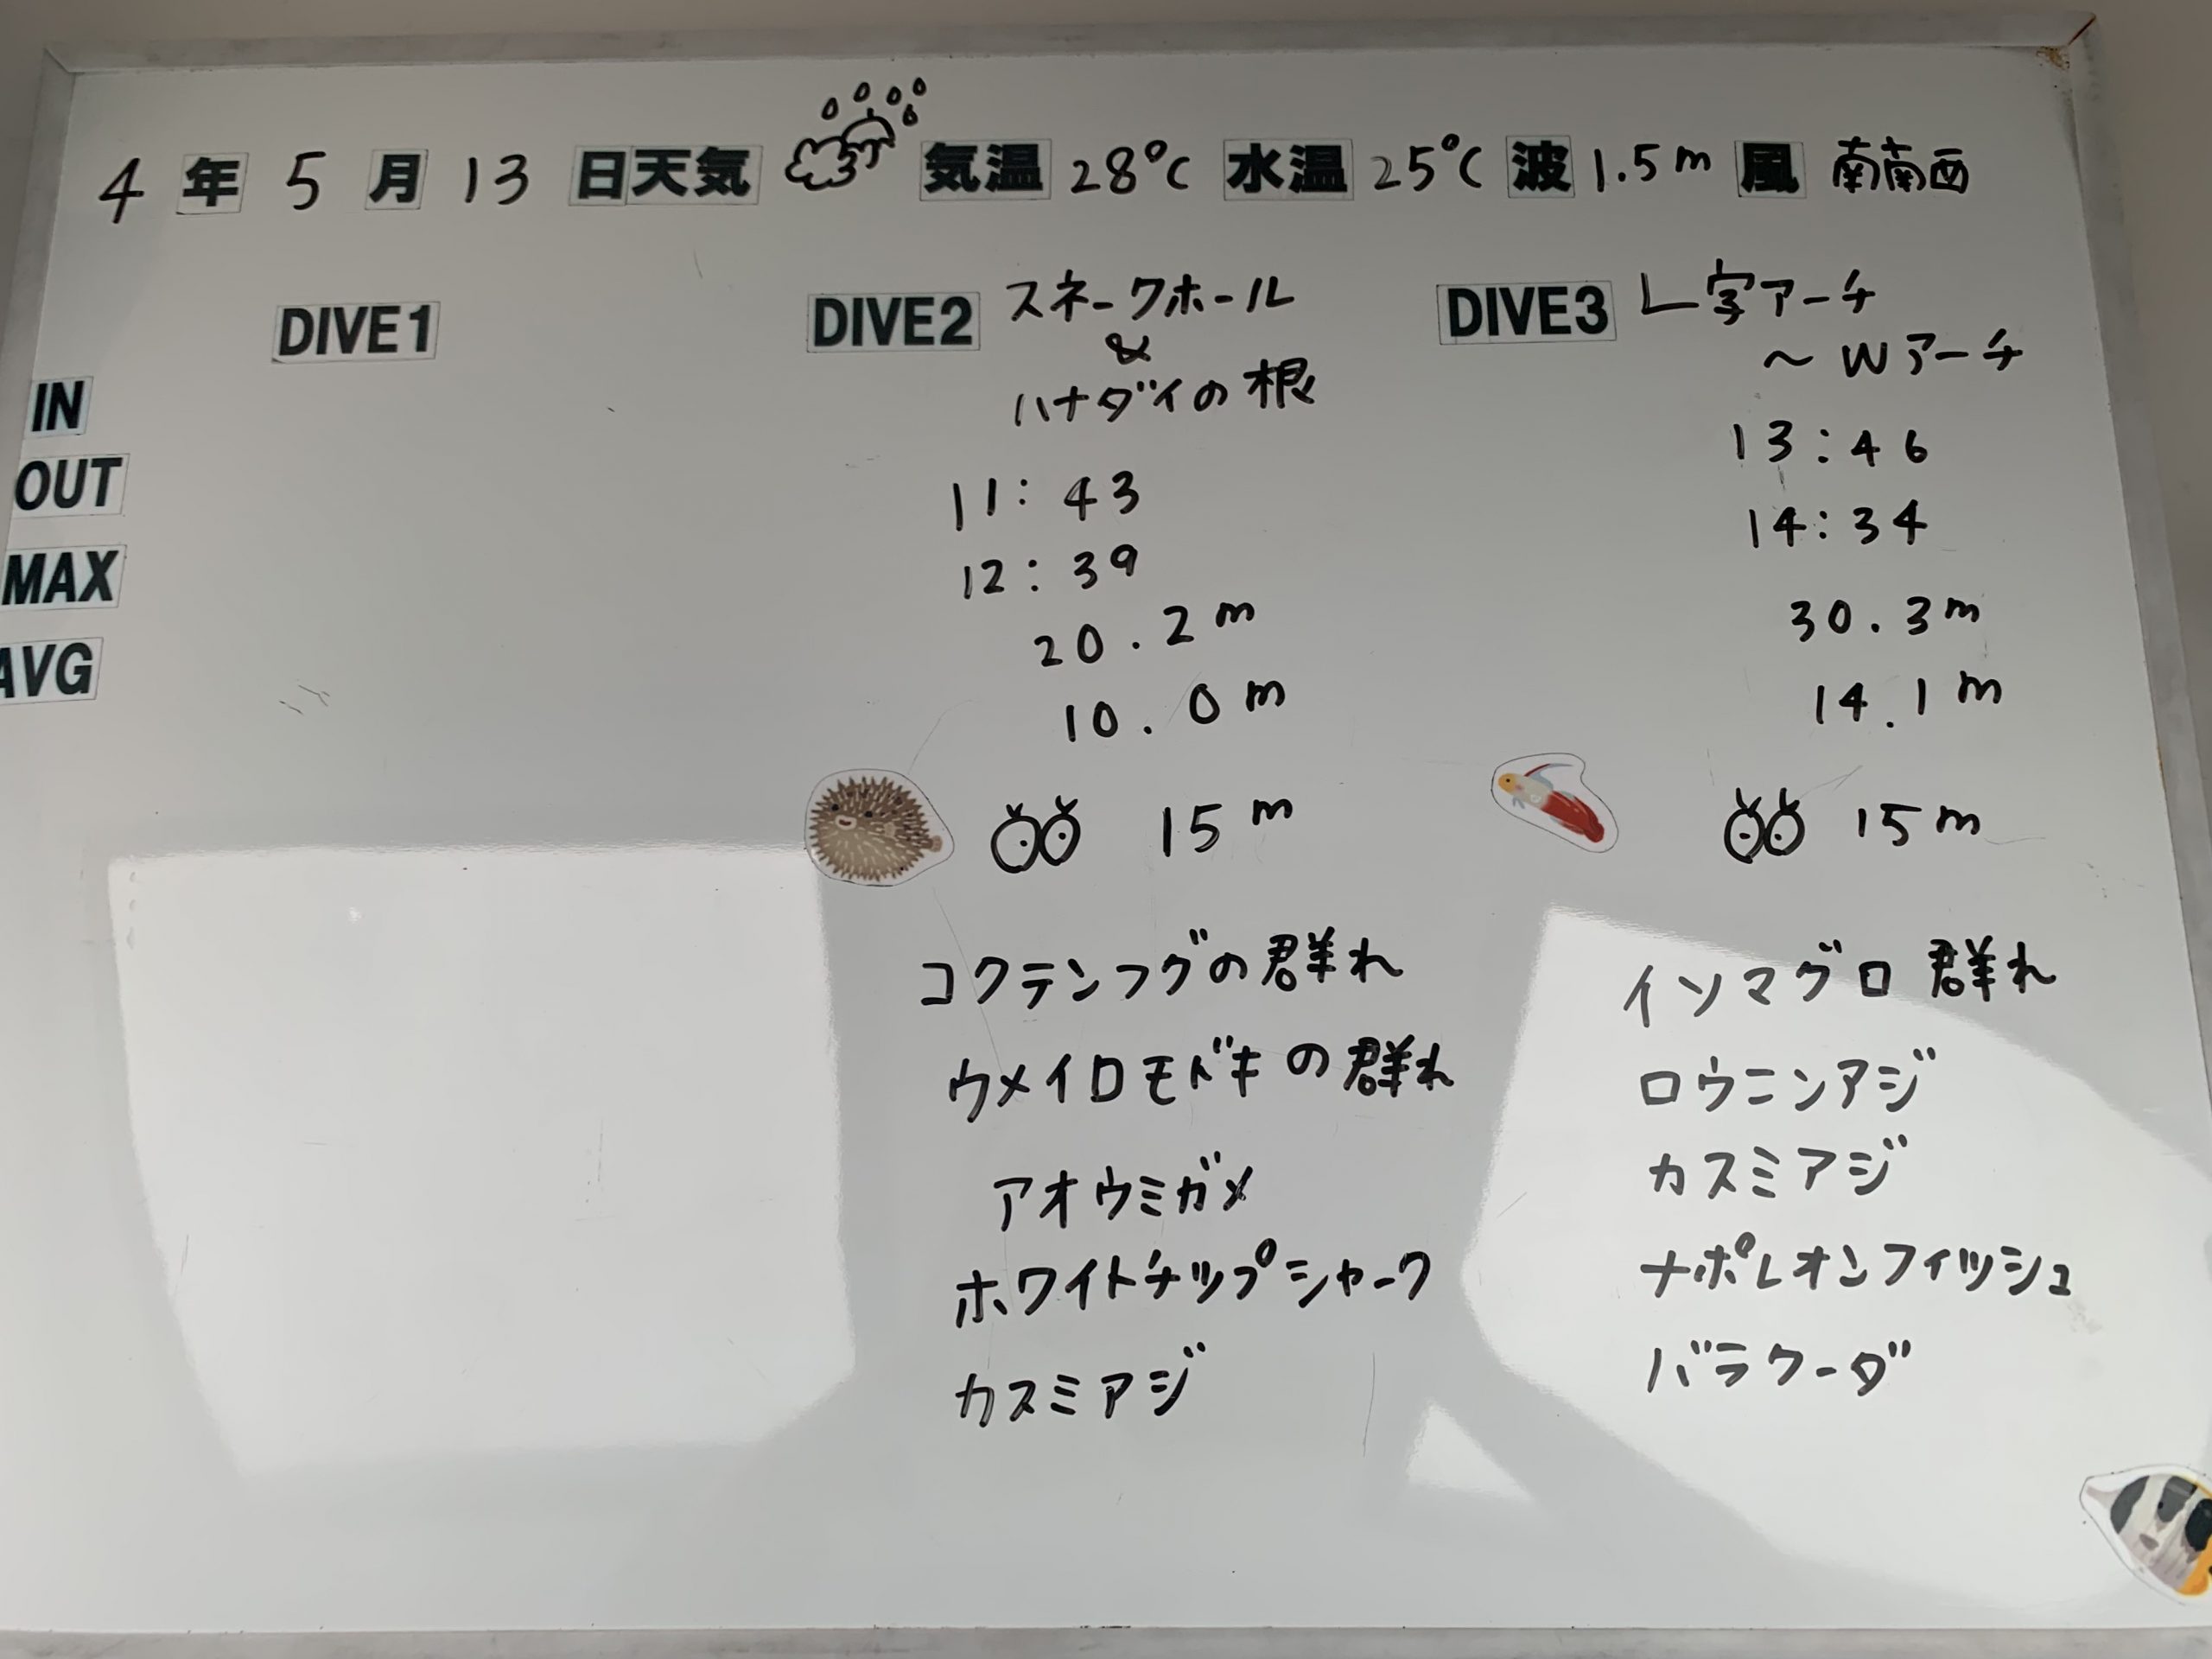 4 年 5 月 13 日 天気 気温 28℃ 水温 25℃ 波 1.5m 風 南南西
DIVE1
DIVE2 スネークホール
&
ハナダイの根
DIVE3 L字アーチ
～Wアーチ
IN 11:43 13:46
OUT 12:39 14:34
MAX 20.2m 30.3m
AVG 10.0m 14.1m
15m 15m
コクテンフグの群れ
ウメイロモドキの群れ
アオウミガメ
ホワイトチップシャーク
カスミアジ
イソマグロ 群れ
ロウニンアジ
カスミアジ
ナポレオンフィッシュ
バラクーダ